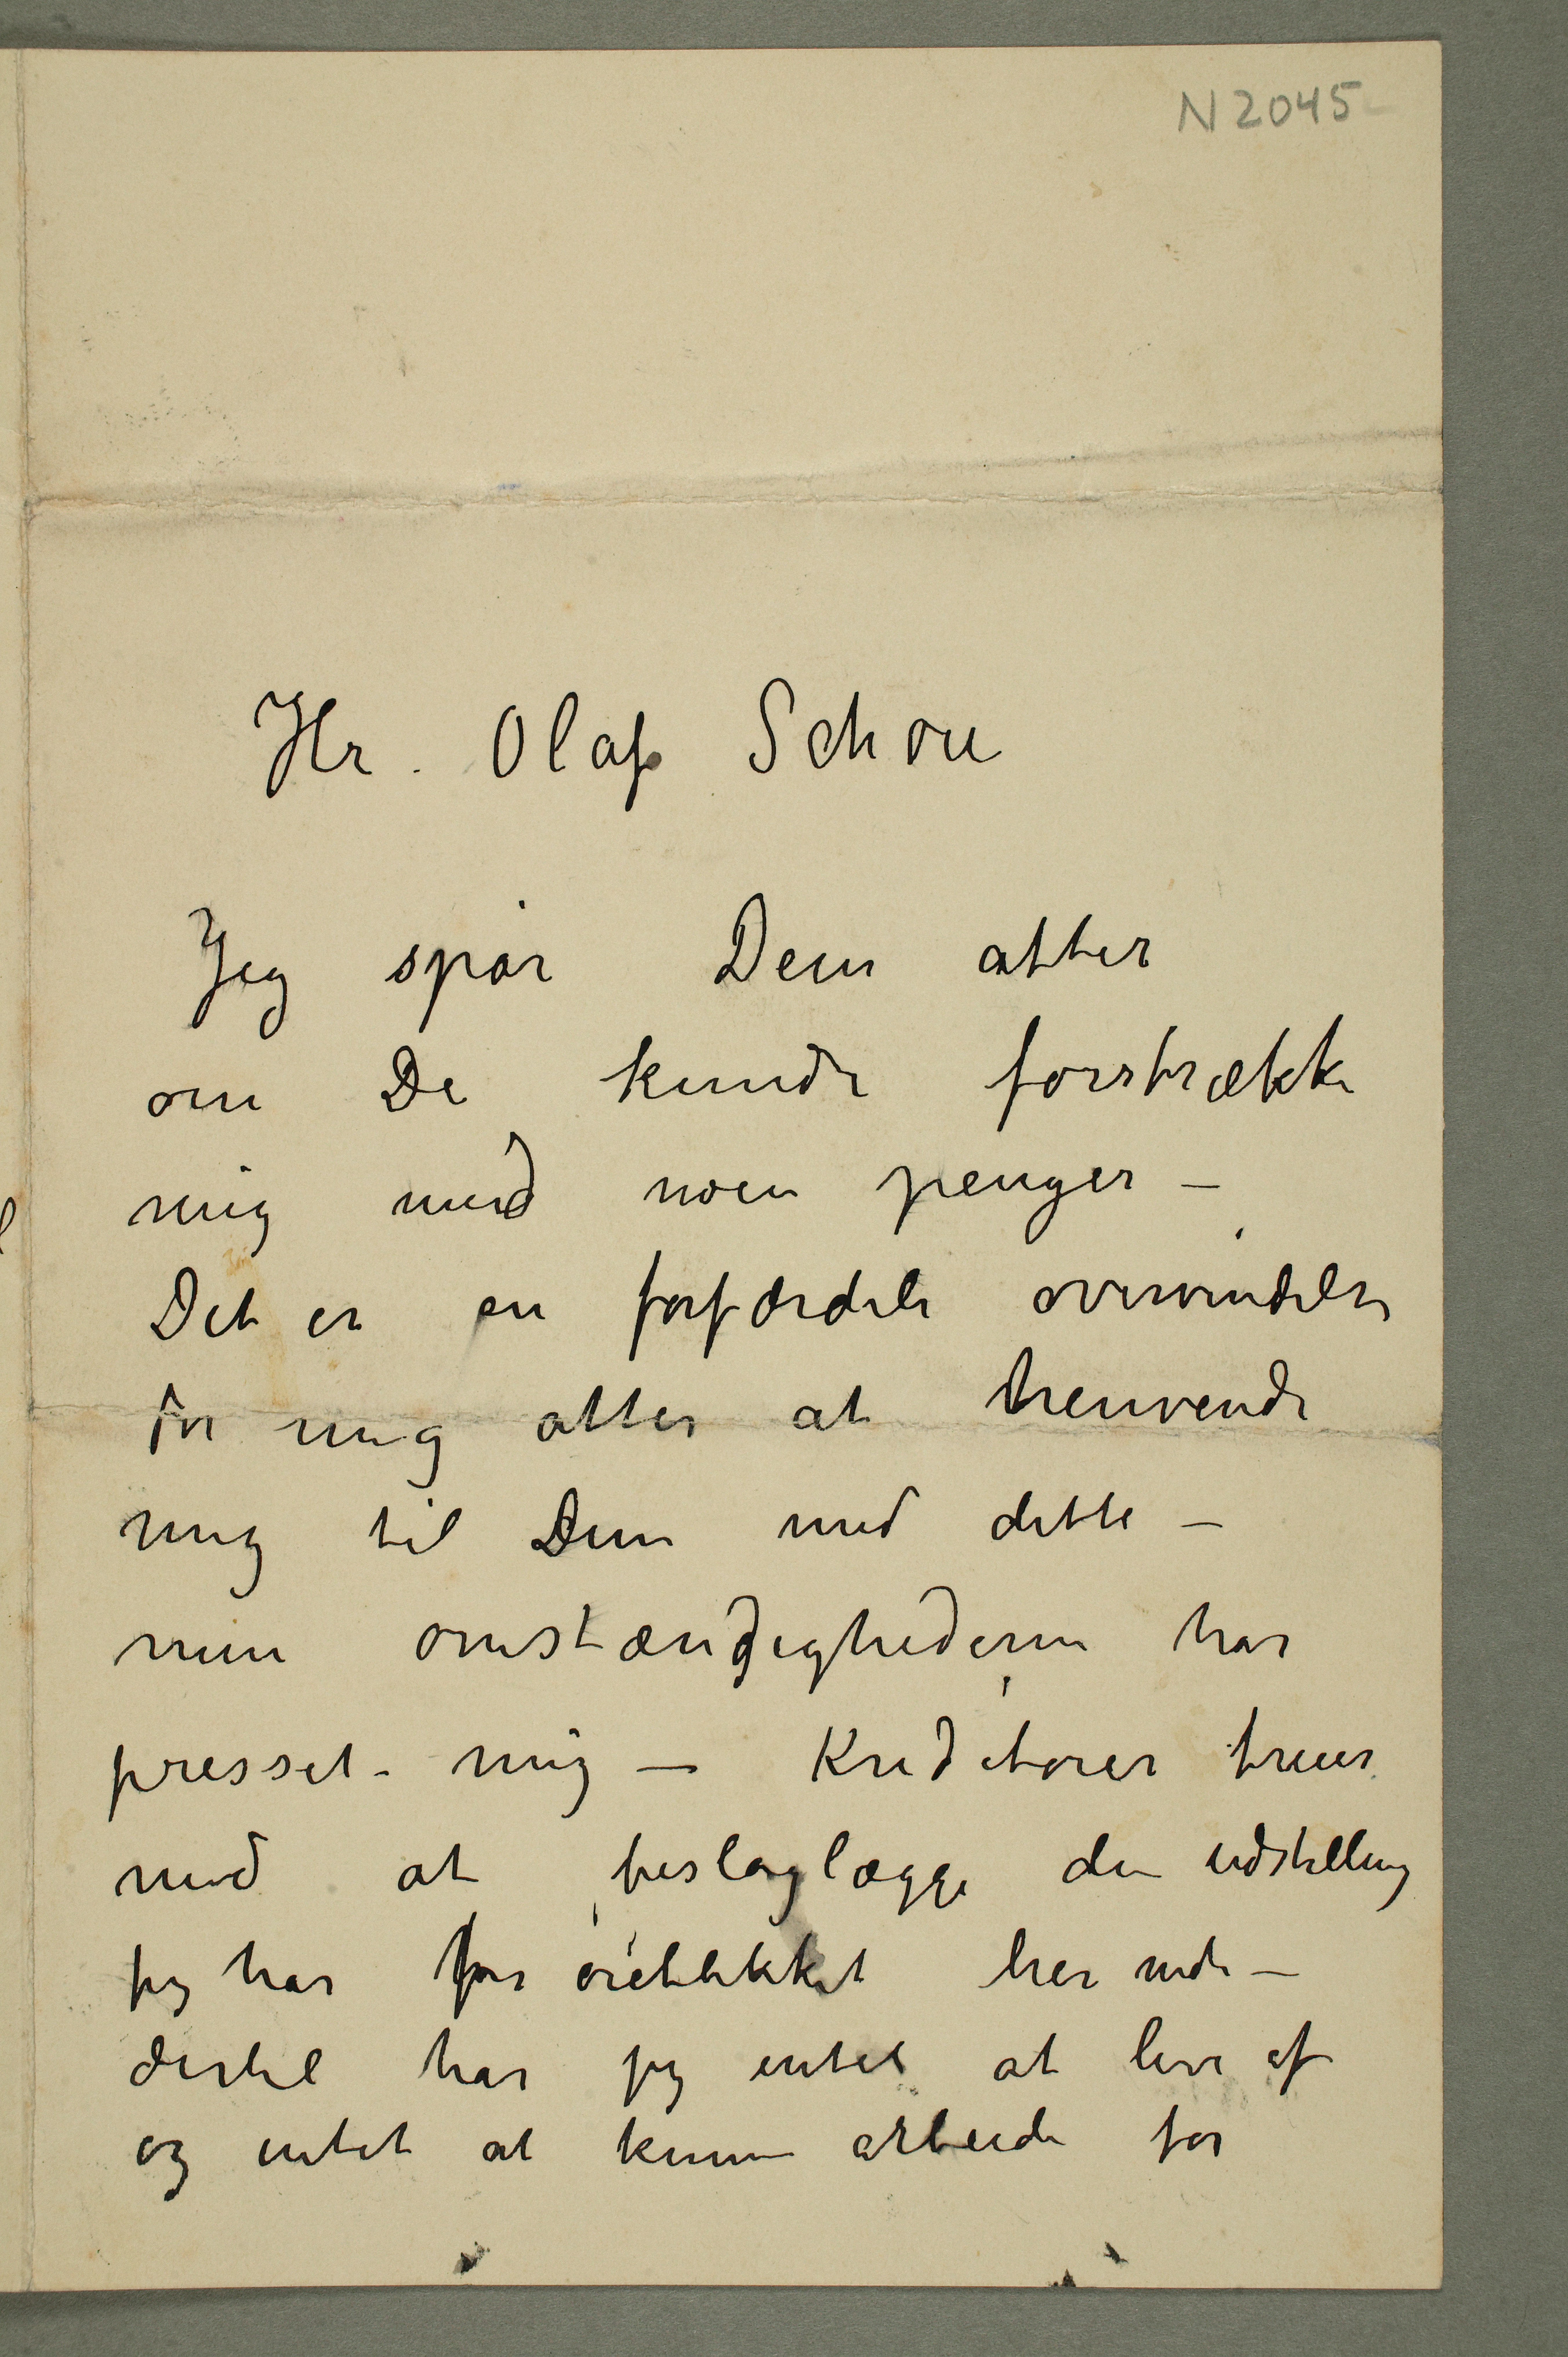 N 2045
Hr. Olaf Schou
Jeg spør Dem atter
om De kunde forstrække
mig med noen penger –
Det er en forfærdeli overvindelse
for mig atter at henvende
mig til Dem med dette –
men omstændighederne har
presset mig – Kreditorer truer
med at beslaglægge den udstilling
jeg har for øieblikket her nede –
dertil har jeg intet at leve af
og intet at kunne arbeide for